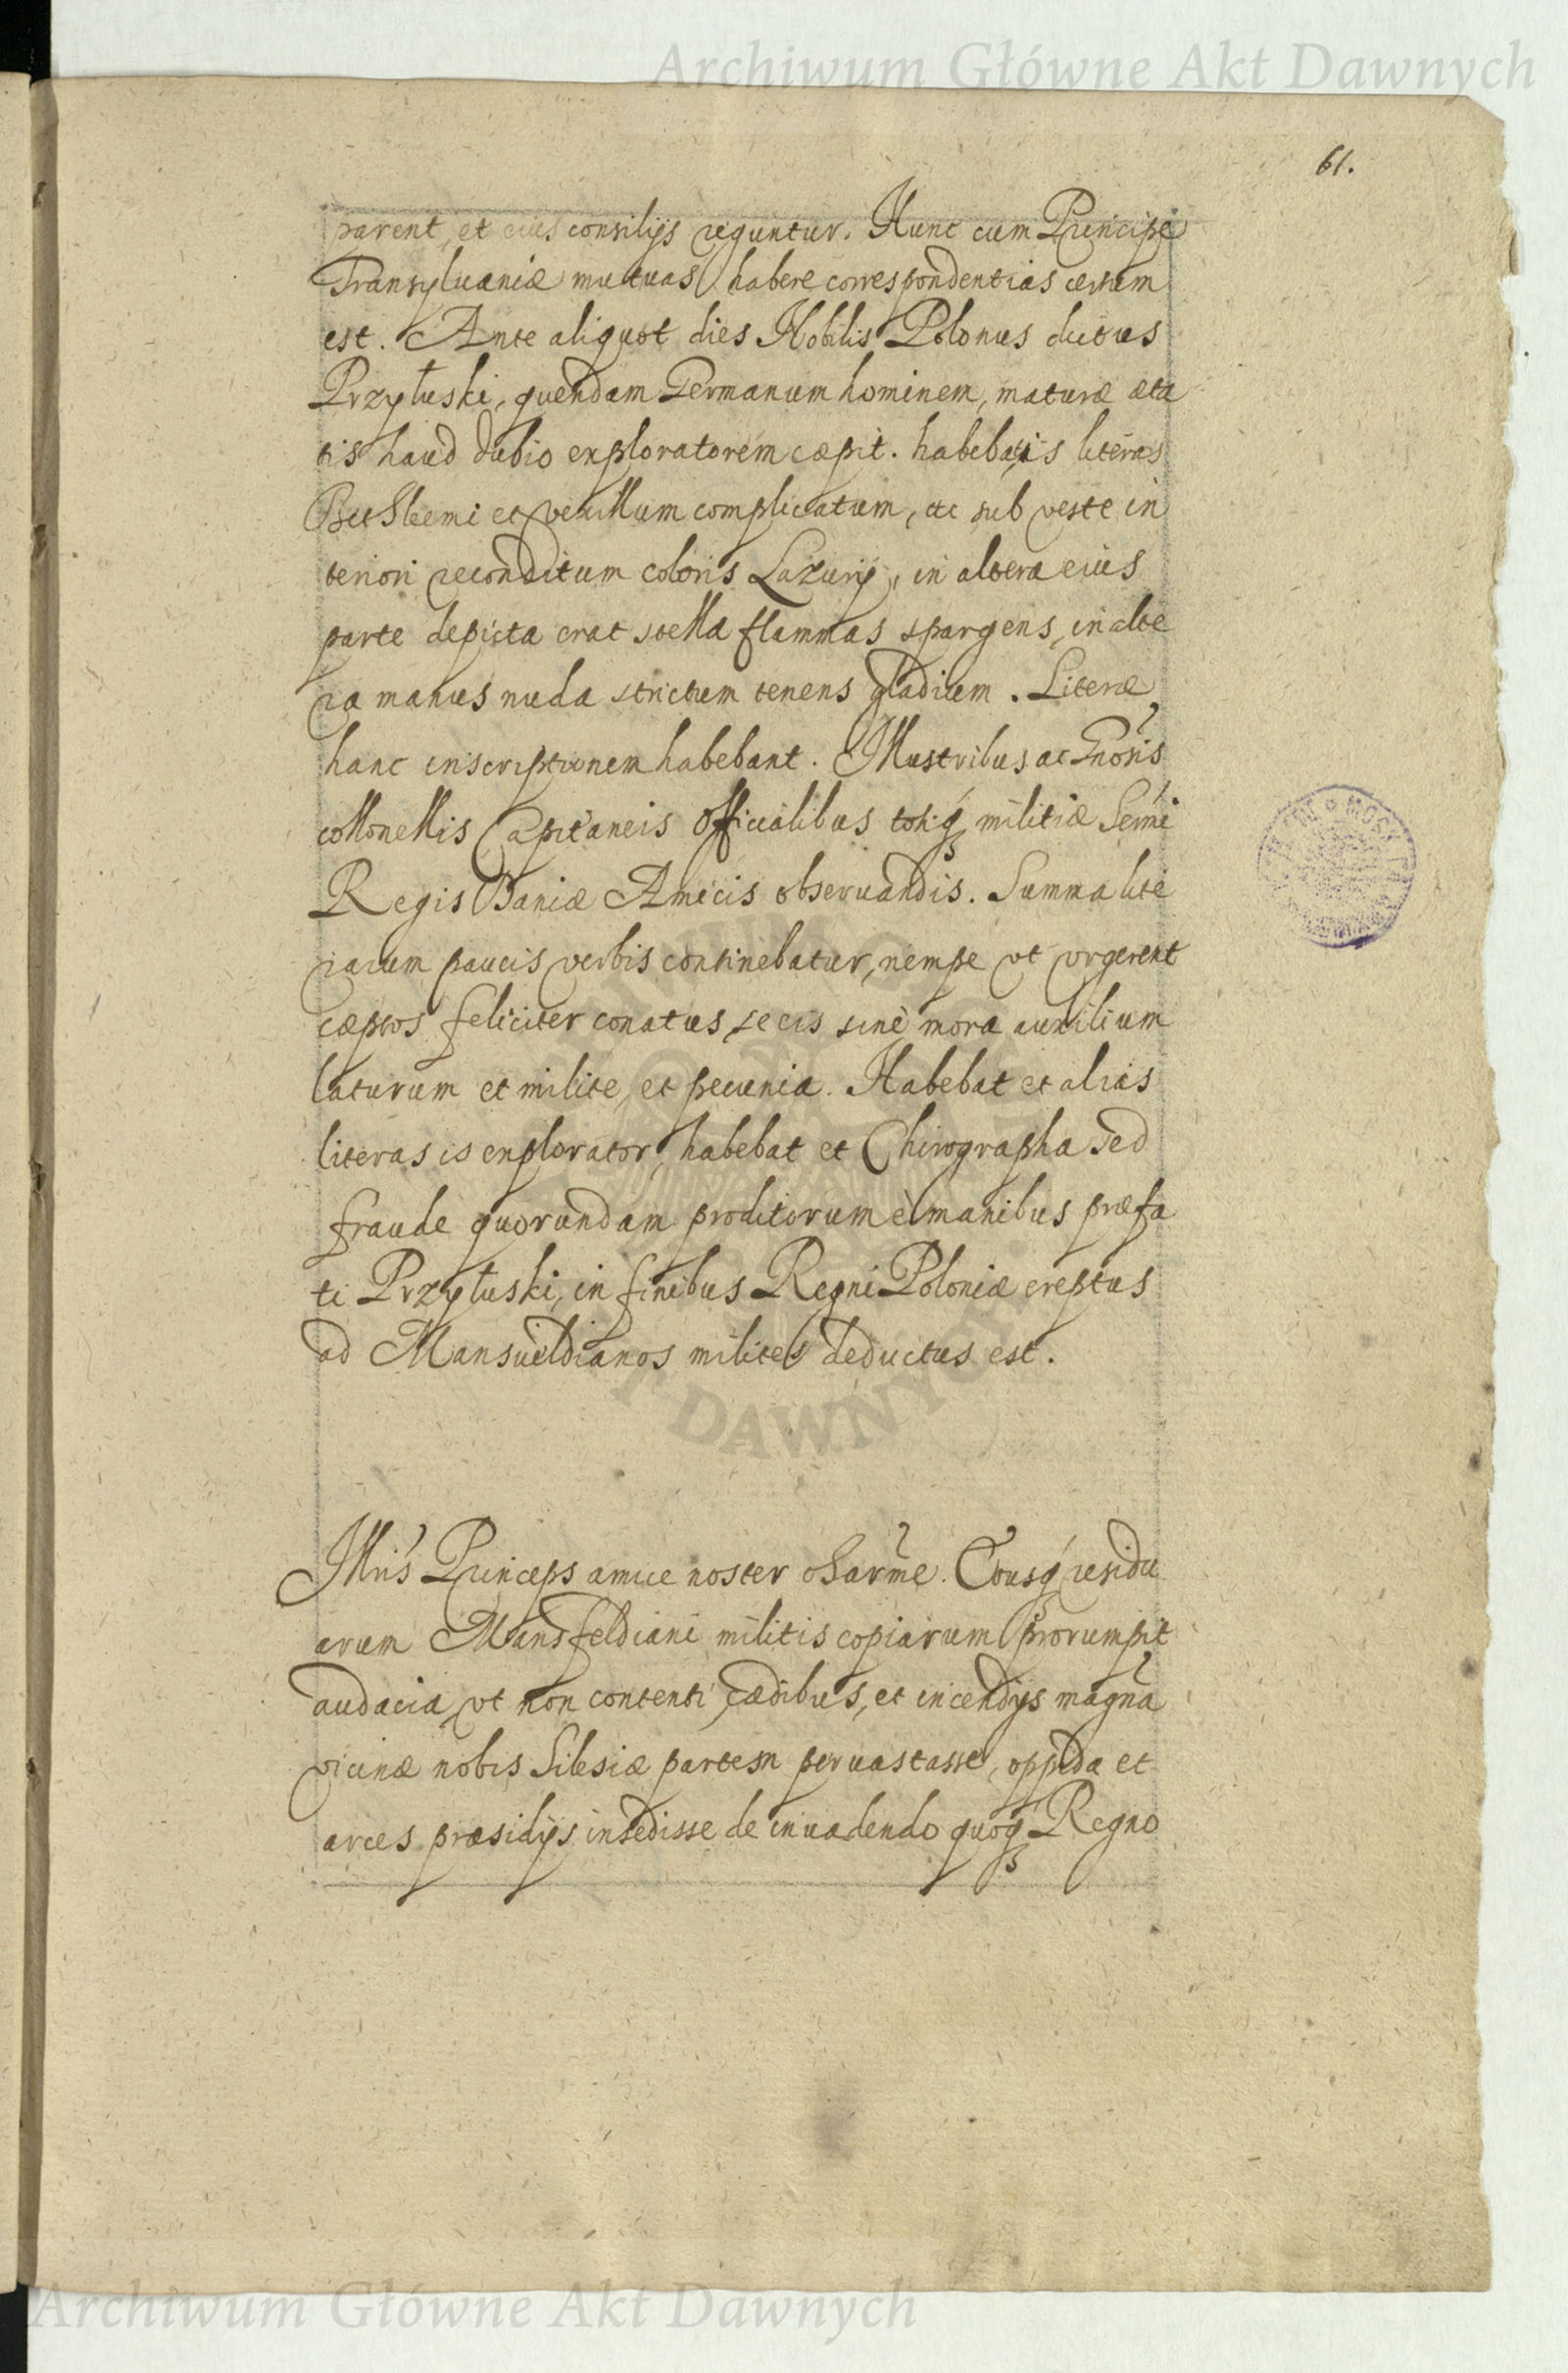 Archiwum Główne Akt Dawnych
61.
parent, et eius consilijs reguntur. Hunc cum Principe
Transyluaniæ mutuas habere correspondentias certum
est. Ante aliquot dies Nobilis Polonus dictus
Przyłuski, quendam Germanum hominem, maturæ æta
tis haud dubio exploratorem cæpit. habebat is literas
Bethleemi et vexillum complicatum, ac sub veste in
teriori reconditum coloris Lazurij, in altera eius
parte depicta erat stella flammas spargens, in alte
ra manus nuda strictum tenens gladium. Literæ
hanc inscriptionem habebant. Illustribus ac Gnosis
collonellis Capitaneis Officialibus totiq militiæ Sermi
Regis Daniæ Amicis obseruandis. Summa lite
rarum paucis verbis continebatur, nempe vt vrgerent
cæptos feliciter conatus, se eis sine mora auxilium
laturum et milite, et pecunia. Habebat et alias
literas is explorator, habebat et Chirographa sed
fraude quorundam proditorum è manibus præfa
ti Przyłuski, in finibus Regni Poloniæ ereptus
ad Mansueldianos milites deductus est.
Illris Princeps amice noster obsarme. Eousq residu
arum Mansfeldiani militis copiarum prorumpit
audacia, vt non contenti cædibus, et incendijs magna
vicinæ nobis Silesiæ partem peruastasse, oppida et
arces præsidijs insedisse de inuadendo quoq Regno
DAWNYCH
Archiwum Główne Akt Dawnych